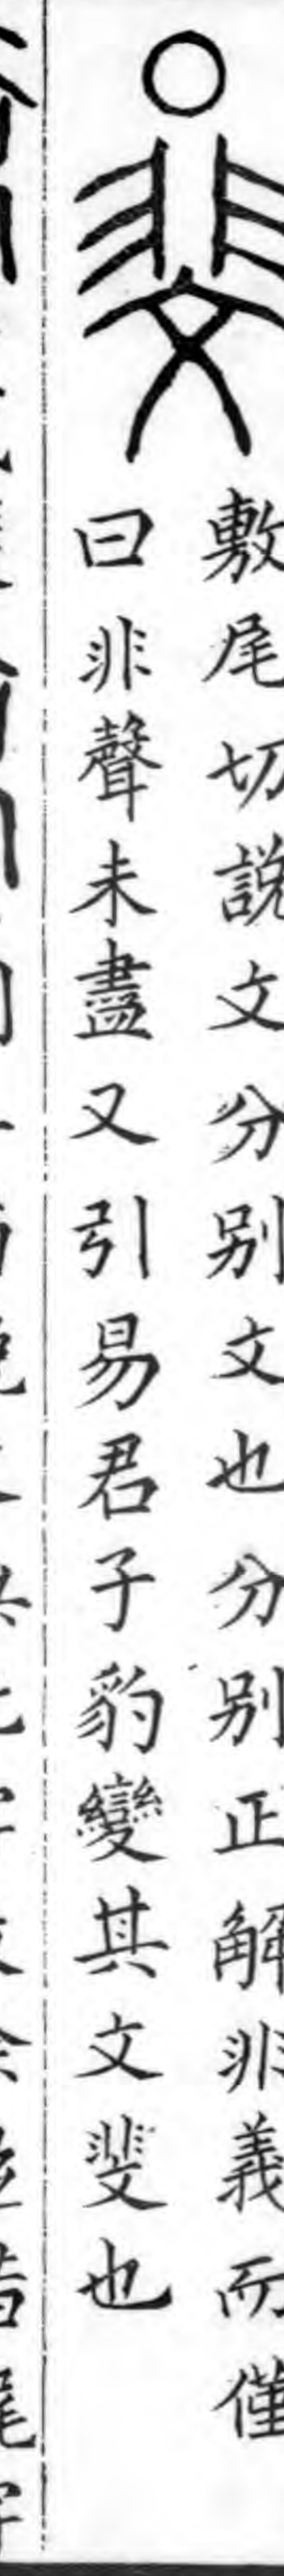 斐
敷尾切說文分别文也分别正解非義而僅
曰非聲未盡又引易君子豹變其文斐也